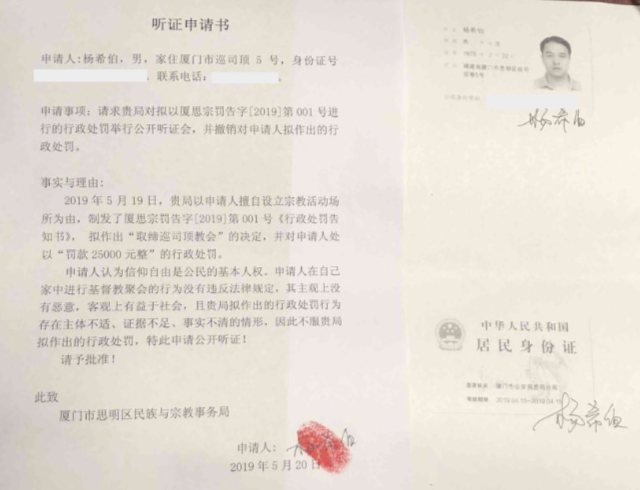 听证申请书
申请人:杨希伯,男,家住厦门市巡司顶 5 号,身份证号
,联系电话:
申请事项:请求贵局对拟以厦思宗罚告字[2019]第 001 号进
行的行政处罚举行公开听证会,并撤销对申请人拟作出的行
政处罚。
事实与理由:
2019 年 5 月 19 日,贵局以申请人擅自设立宗教活动场
所为由,制发了厦思宗罚告字[2019]第 001 号《行政处罚告
知书》, 拟作出“取缔巡司顶教会”的决定,并对申请人处
以“罚款 25000 元整”的行政处罚。
申请人认为信仰自由是公民的基本人权。申请人在自己
家中进行基督教聚会的行为没有违反法律规定,其主观上没
有恶意,客观上有益于社会,且贵局拟作出的行政处罚行为
存在主体不适、证据不足、事实不清的情形,因此不服贵局
拟作出的行政处罚,特此申请公开听证!
请予批准!
此致
厦门市思明区民族与宗教事务局
申请人:
2019 年 5 月 20 日
杨希伯
杨希伯
中华人民共和国
居民身份证
签发机关 厦门市公安局思明分局
杨希伯